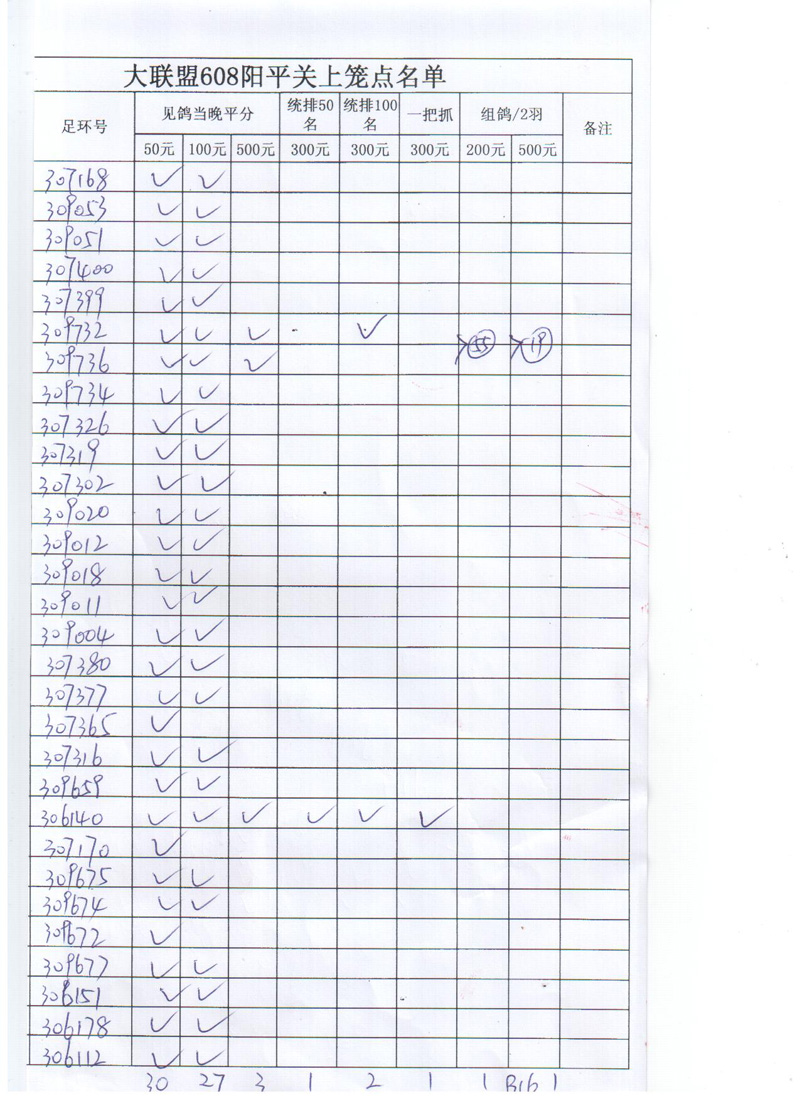 大联盟608阳平关上笼点名单
足环号 见鸽当晚平分 统排50名 统排100名 一把抓 组鸽/2羽 备注
50元 100元 500元 300元 300元 300元 200元 500元
307168 ✓ ✓
309053 ✓ ✓
309051 ✓ ✓
307400 ✓ ✓
307399 ✓ ✓
309732 ✓ ✓ ✓ ✓
55 19
309736 ✓ ✓ ✓
309734 ✓ ✓
307326 ✓ ✓
307319 ✓ ✓
307302 ✓ ✓
309020 ✓ ✓
309012 ✓ ✓
309018 ✓ ✓
309011 ✓ ✓
309004 ✓ ✓
307380 ✓ ✓
307377 ✓ ✓
307365 ✓
307316 ✓ ✓
309659 ✓ ✓
306140 ✓ ✓ ✓ ✓ ✓ ✓
307170 ✓
309675 ✓ ✓
309674 ✓ ✓
309672 ✓
309677 ✓ ✓
306151 ✓ ✓
306178 ✓ ✓
306112 ✓ ✓
30 27 3 1 2 1 1 1